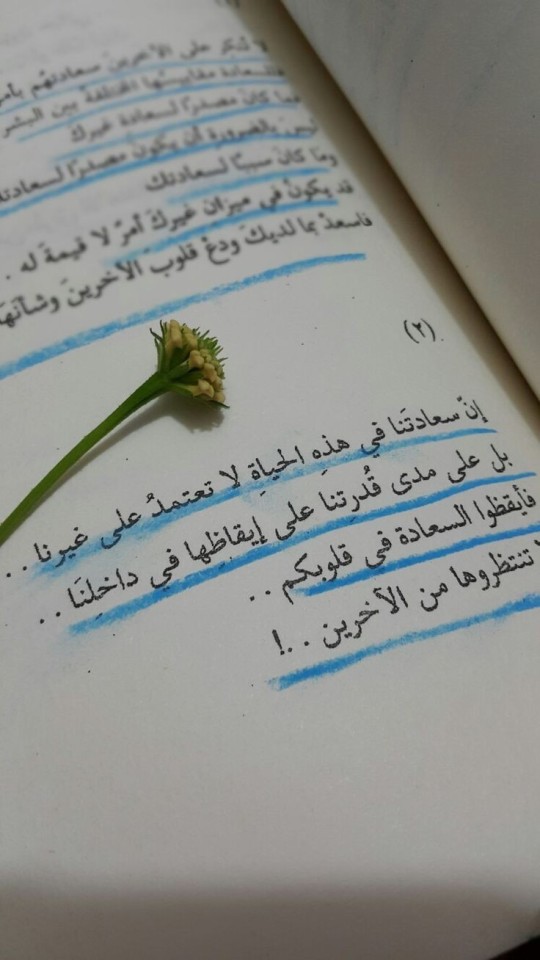 على الآخرين سعادتهم
مقاييسها المختلفة بين البشر
كان مصدرًا لسعادة غيرك
بالضرورة أن يكون مصدرًا
وما كان سببًا لسعادتك
قد يكونُ في ميزان غيركَ أمرٌ لا قيمةَ له .
فاسعدْ بما لديكَ ودعْ قلوبَ الآخرينَ وشأنَها
(٢)
إنّ سعادتَنا في هذِهِ الحياةِ لا تعتمدُ على غيرنا . .
بل على مدى قُدرتنا على إيقاظِها في داخلِنَا . .
فأيقظوا السعادة في قلوبكم . .
تنتظروها من الآخرين . .!